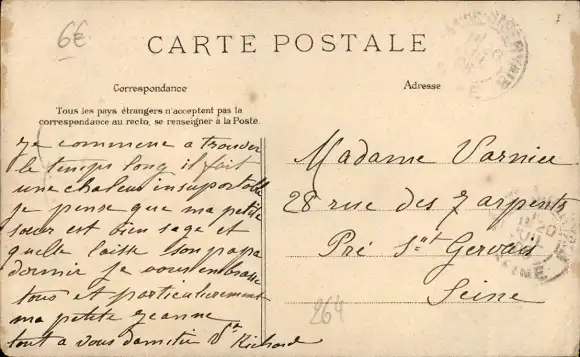 6€
CARTE POSTALE
Correspondance
Adresse
Tous les pays étrangers n'acceptent pas la
correspondance au recto, se renseigner à la Poste.
je commence a trouver
le temps long il fait
une chaleur insuportable
je pense que ma petite
sœur est bien sage et
quelle laisse son papa
dormir je vous embrasse
tous et particulierement
ma petite Jeanne
tout a vous d'amitié Richard
Madame Varnier
28 rue des 7 arpents
Pré St Gervais
Seine
264